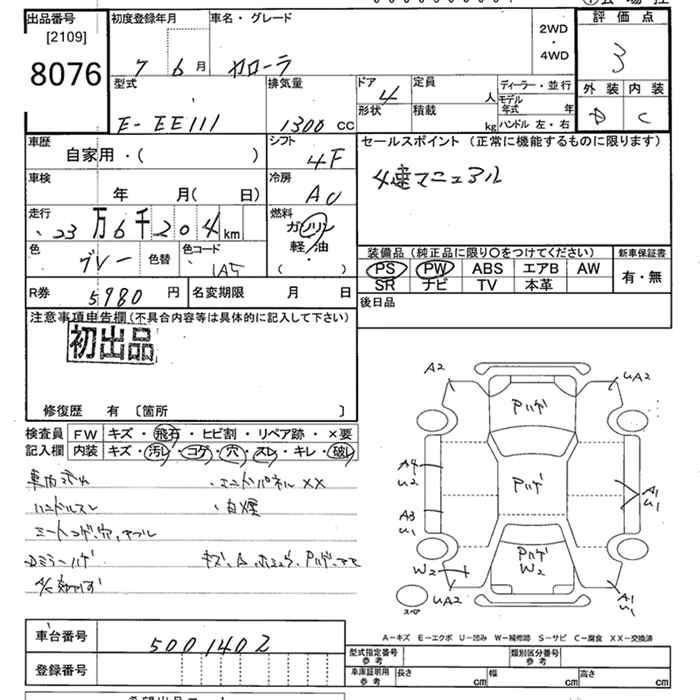 出品番号
[2109]
8076
初度登録年月
7 6月
車名・グレード
カローラ
2WD
・
4WD
評価点
3
外装 内装
D C
型式
E-EE111
排気量
1300 CC
ドア
4
形状
定員
人
積載
kg
ディーラー・並行
モデル
年式
年
ハンドル 左・右
車歴
自家用・( )
シフト
4F
車検
年 月( 日)
冷房
AC
走行
23万6千204km
燃料
ガソリン
軽・油
・( )
色
グレー
色替
色コード
1A5
R券
5980円
名変期限 月 日
セールスポイント (正常に機能するものに限ります)
4速マニュアル
装備品(純正品に限り〇をつけてください)
新車保証書
PS PW ABS エアB AW
SR ナビ TV 本革
有・無
後日品
注意事項申告欄(不具合内容等は具体的に記入して下さい)
初出品
修復歴 有 〔箇所 〕
検査員 FW キズ・飛石・ヒビ割・リペア跡・×要
記入欄 内装 キズ・汚レ・コゲ・穴・スレ・キレ・破レ
・エンドパネルXX
ハンドルスレ
・白煙
A/C効かず
A2
UA2
Pハゲ
A4
U2
Pハゲ
A1
U1
A3
U1
Pハゲ
W2
W2
UA2
スペア
A1
U1
A-キズ E-エクボ U-凹み W-補修跡 S-サビ C-腐食 XX-交換済
車台番号 5001402
登録番号
型式指定番号
参考
類別区分番号
参考
車庫証明用
参考
長さ cm 幅 cm 高さ cm